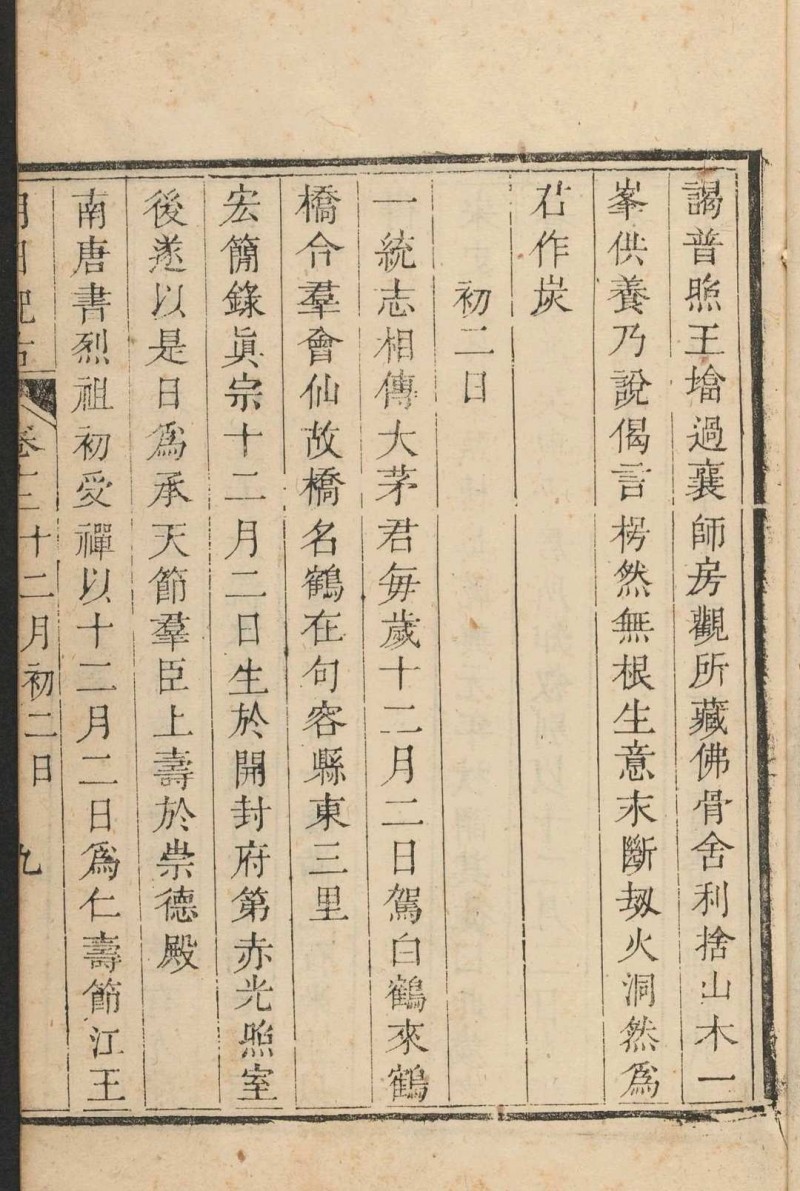 謁普照王墖過襄師房觀所藏佛骨舍利捨山木一
峯供養乃說偈言楞然無根生意末斷刼火洞然爲
君作炭
初二日
一統志相傳大茅君每歲十二月二日駕白鶴來鶴
橋合羣會仙故橋名鶴在句容縣東三里
宏簡錄眞宗十二月二日生於開封府第赤光照室
後遂以是日爲承天節羣臣上壽於崇德殿
南唐書烈祖初受禪以十二月二日爲仁壽節江王
月日紀古 卷十二 十二月初二日 九